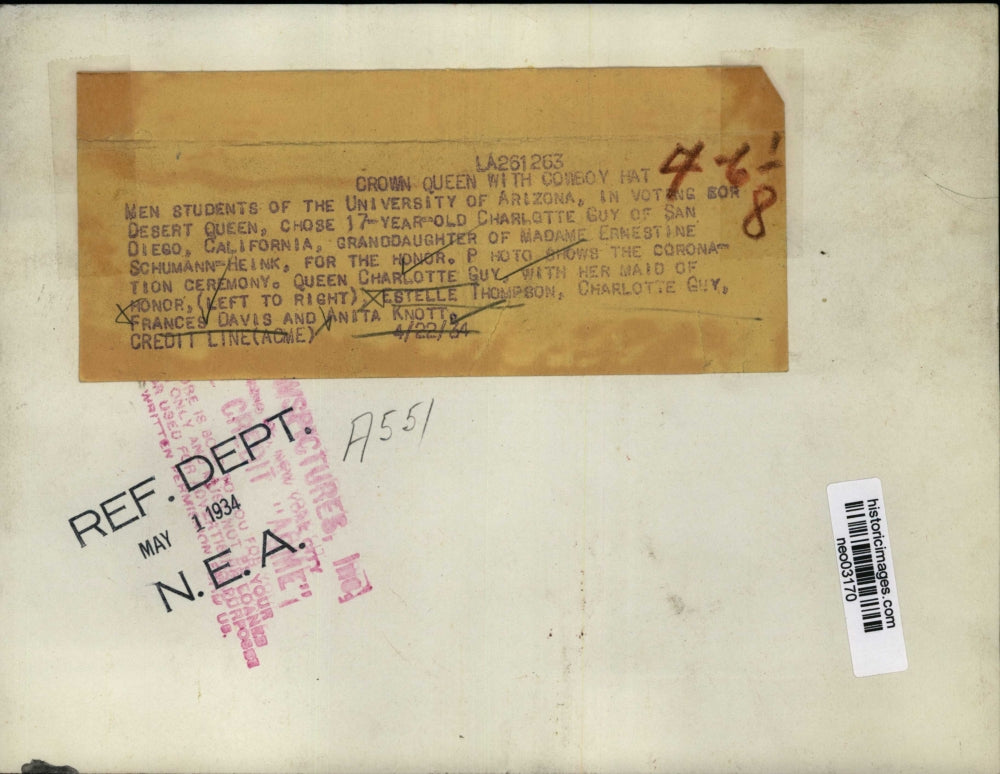 LA261263
CROWN QUEEN WITH COWBOY HAT
4-6 1/8
MEN STUDENTS OF THE UNIVERSITY OF ARIZONA, IN VOTING FOR
DESERT QUEEN, CHOSE 17-YEAR-OLD CHARLOTTE GUY OF SAN
DIEGO, CALIFORNIA, GRANDDAUGHTER OF MADAME ERNESTINE
SCHUMANN-HEINK, FOR THE HONOR. P HOTO SHOWS THE CORONA-
TION CEREMONY. QUEEN CHARLOTTE GUY WITH HER MAID OF
HONOR, (LEFT TO RIGHT) ESTELLE THOMPSON, CHARLOTTE GUY,
FRANCES DAVIS AND ANITA KNOTT.
CREDIT LINE(ACME) 4/22/34
A551
REF. DEPT.
MAY 1 1934
N. E. A.
WSPICTURES, Inc.
NEW YORK CITY
CREDIT "ACME"
WRITTEN PERMISSION
historicimages.com
neo03170